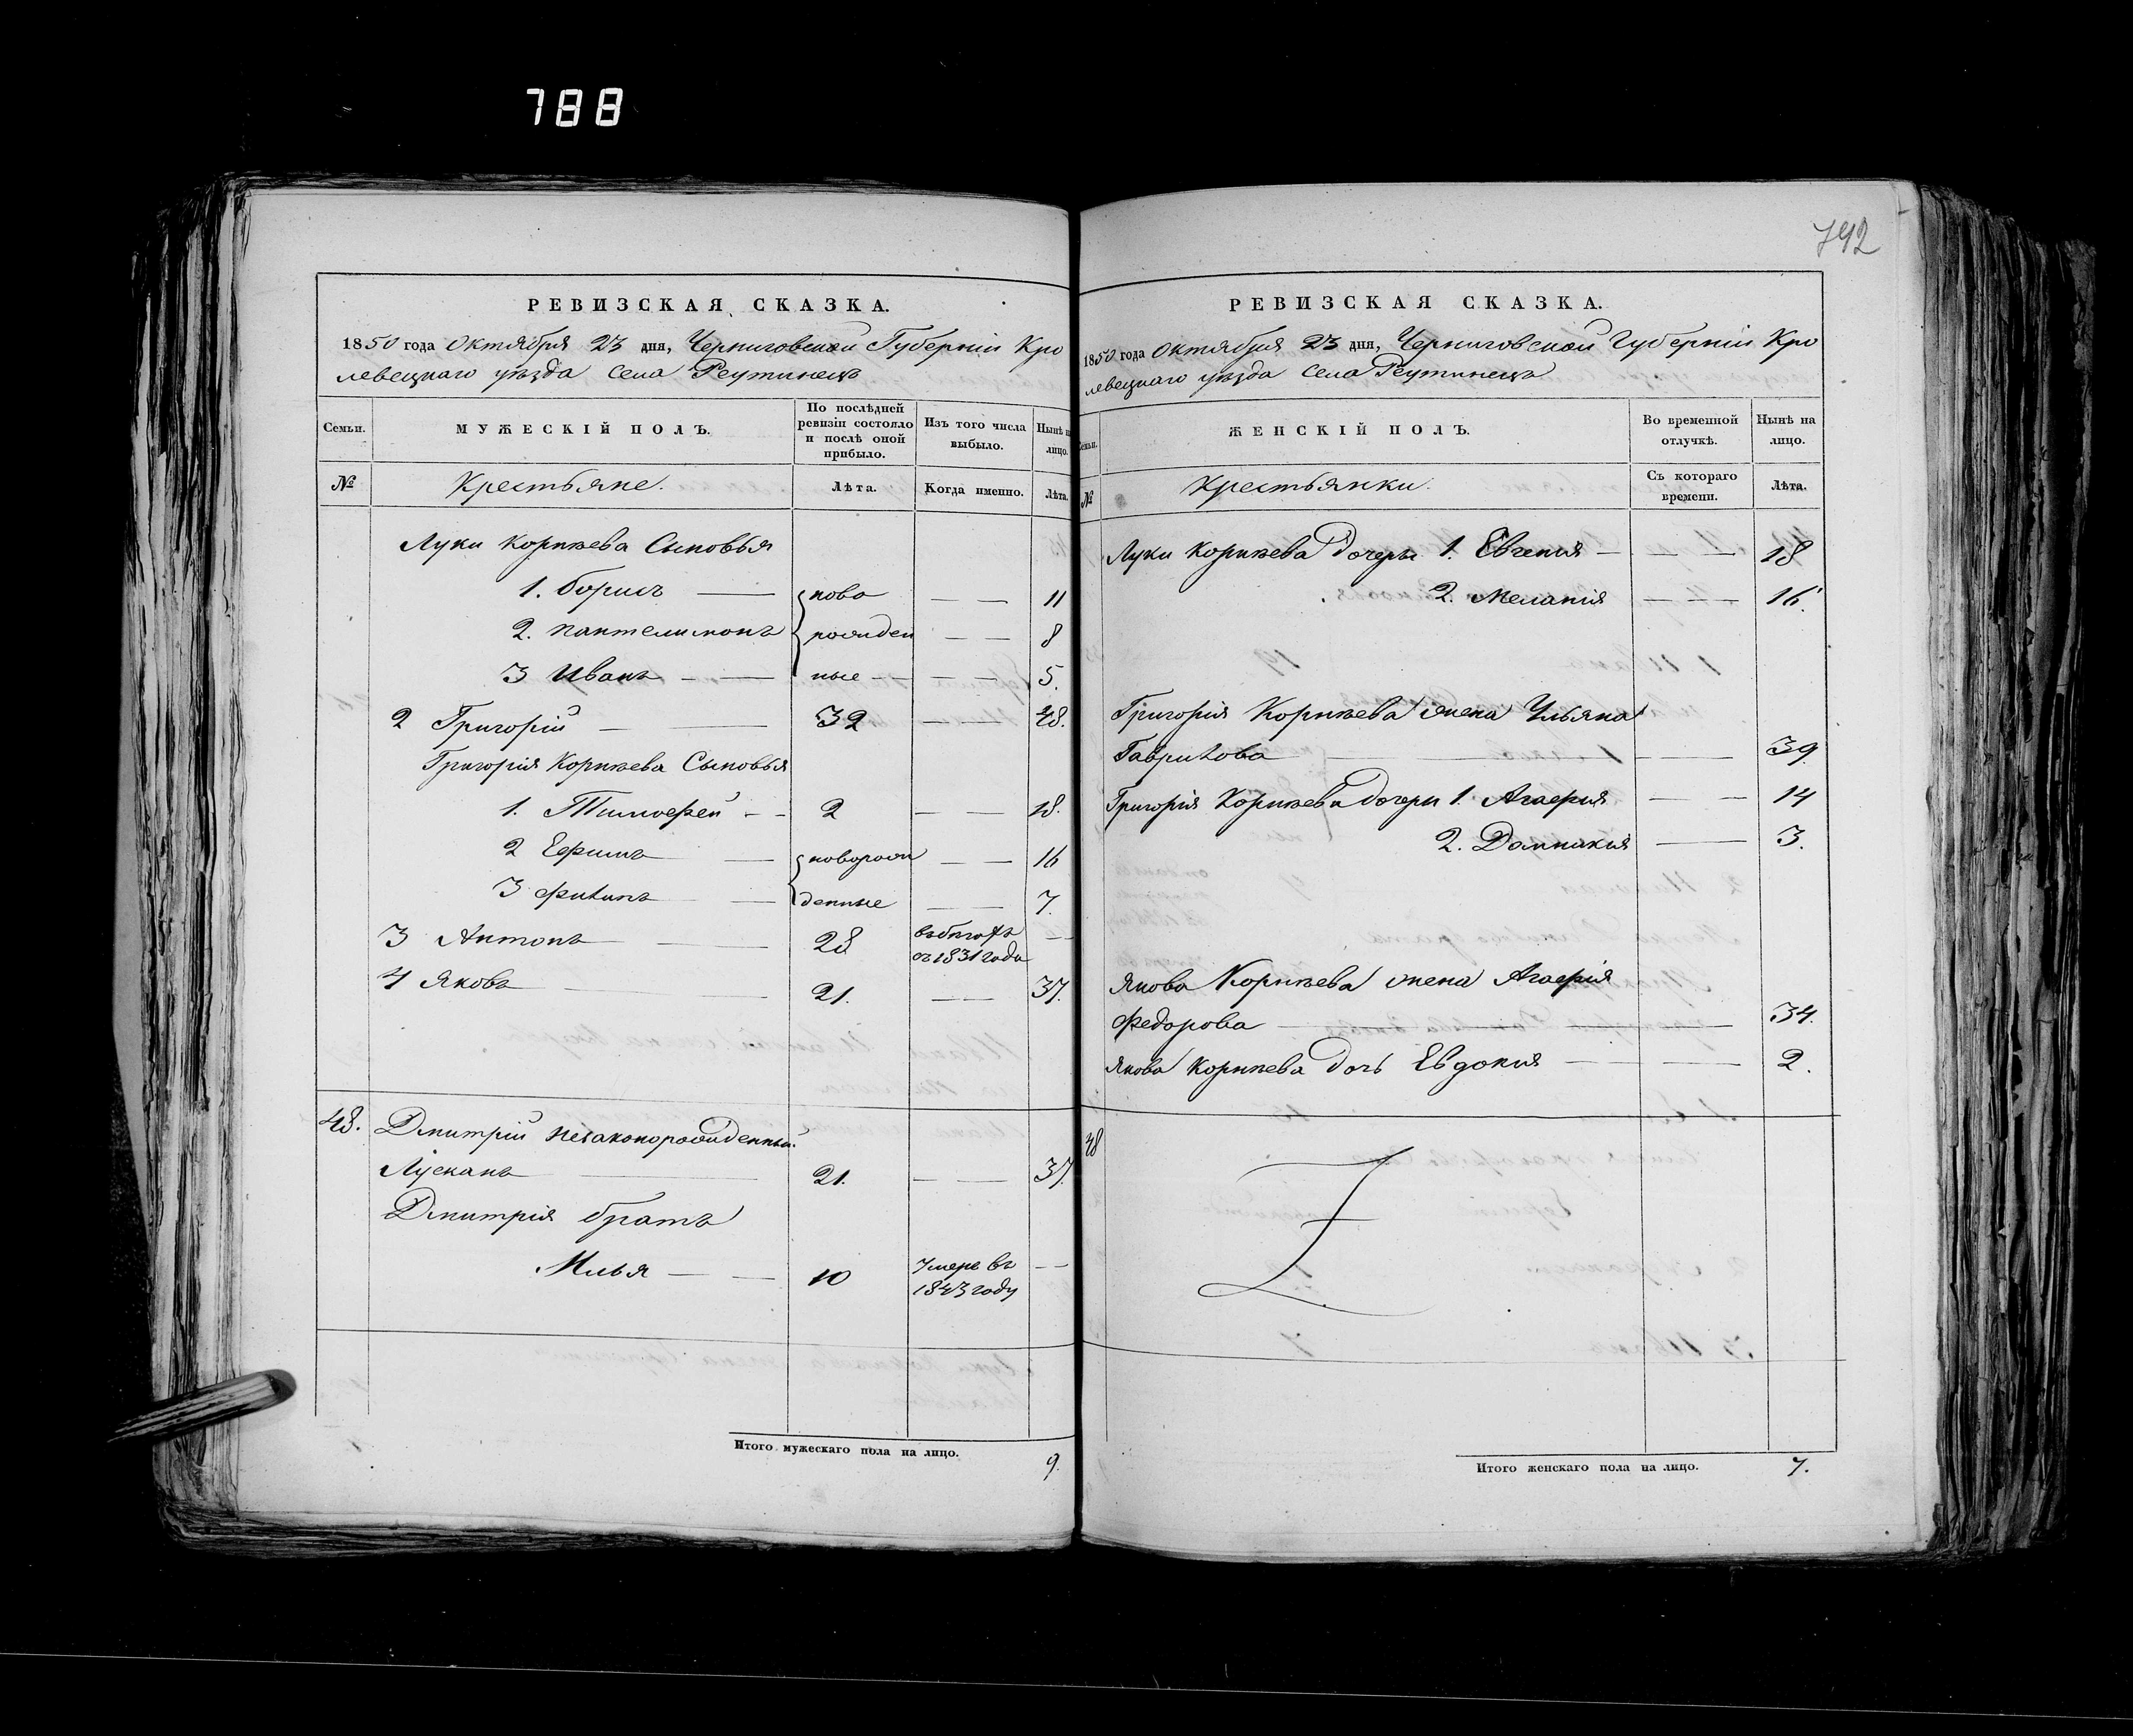 788
792
РЕВИЗСКАЯ СКАЗКА.
1850 года Октября 23 дня, Черниговской Губернiи Кро
левецкаго уѣзда села Реутинецъ
Семьи. МУЖЕСКIЙ ПОЛЪ. По послѣдней ревизiи состояло и послѣ оной прибыло. Изъ того числа выбыло. Нынѣ на лицо.
№ Крестьяне. Лѣта. Когда именно. Лѣта.
Луки Корнѣева Сыновья
1. Борисъ — ново — — 11
2. Пантелимонъ рожден — — 8
3 Иванъ — — ные — — — 5.
2 Григорiй — — 32 — — 48.
Григорiя Корнѣева Сыновья
1. Тимофей - - 2 — — 18.
2 Ефимъ — новорож — — 16
3 Филипъ — — денные — 7.
3 Антонъ — — 28 въ бѣгахъ съ 1831 года —
4 Яковъ — — 21. — — 37.
48. Дмитрiй незаконорожденный
Лускань — 21. — — 37.
Дмитрiя братъ
Илья — — 10 Умеръ въ 1843 году — —
Итого мужескаго пола на лицо. 9.
РЕВИЗСКАЯ СКАЗКА.
1850 года Октября 23 дня, Черниговской Губернiи Кро
левецкаго уѣзда села Реутинецъ
Семьи. ЖЕНСКIЙ ПОЛЪ. Во временной отлучкѣ. Нынѣ на лицо.
№ Крестьянки. Съ котораго времени. Лѣта.
Луки Корнѣева дочери 1. Евгенiя — — — 18
2. Меланiя — — — 16.
Григорiя Корнѣева жена Ульяна
Гаврилова — — — 39.
Григорiя Корнѣева дочери 1. Агафiя — — 14
2. Домникiя — 3.
Якова Корнѣева жена Агафiя
Федорова — — — 34.
Якова Корнѣева дочь Евдокiя — — 2.
48
Итого женскаго пола на лицо. 7.